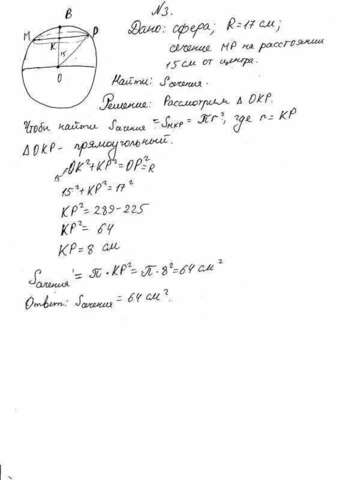 N3.
B
Дано: сфера; R=17 см;
M
P
сечение MP на расстоянии
K
15
15 см от центра.
O
Найти: Sсечения.
Решение: Рассмотрим △ OKP.
Чтоби найти Sсечения = Sмкр = πr², где r = KP
△OKP - прямоугольный.
OK²+KP²=OP²=R
15²+KP²=17²
KP²=289-225
KP²= 64
KP=8 см
Sсечения = π · KP² = π · 8² = 64 см²
Ответ: Sсечения = 64 см².